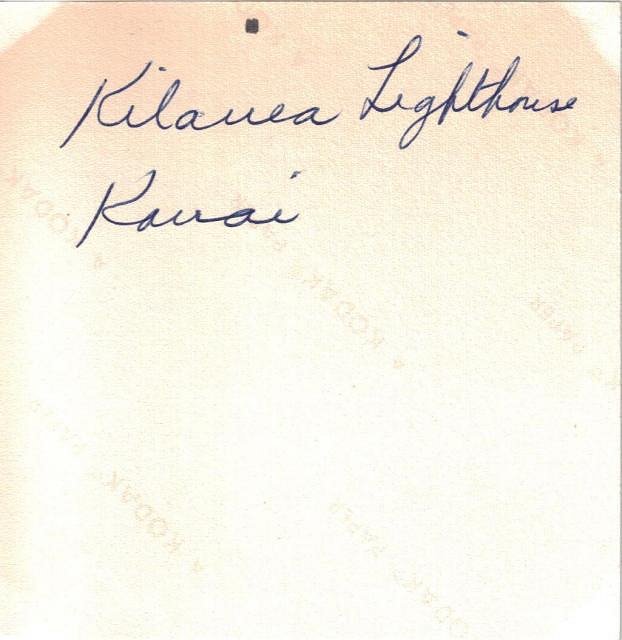 Kilauea Lighthouse
Kauai
A KODAK PAPER
A KODAK PAPER
PAPER
A KODAK PAPER
KODAK PAPER